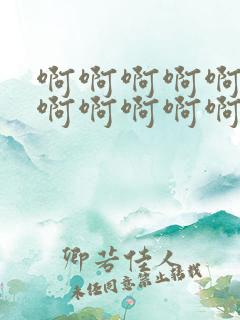 啊啊啊啊啊
啊啊啊啊啊
卿若佳人
未经同意禁止转载